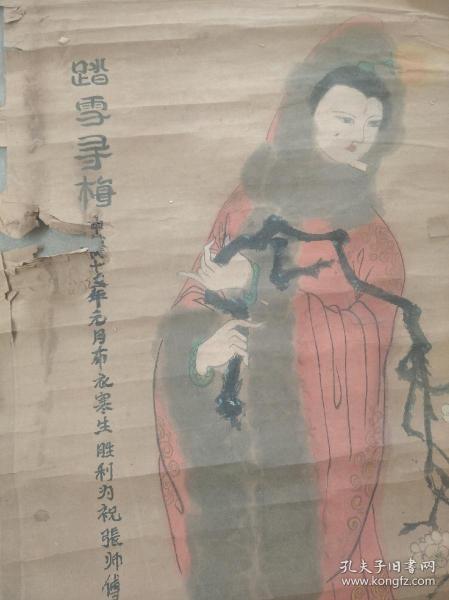 踏雪寻梅
十五年元月布衣寒生胜利为祝張师傅
孔夫子旧书网
www.kongfz.com